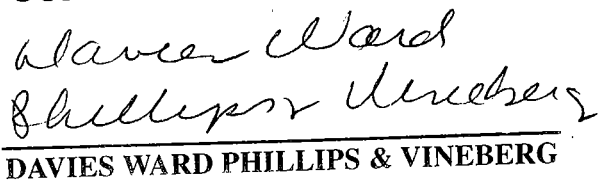 Davies Ward
Phillips & Vineberg
DAVIES WARD PHILLIPS & VINEBERG